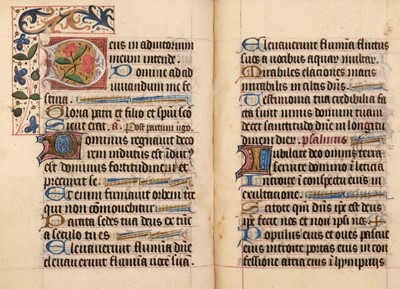 Deus in adiutorium
meum intende.
Domine ad ad
iuuandum me fe
stina.
Gloria patri et filio et spũi sco
Sicut erat. a. Post partum ugo.
Dominus regnauit deco
rem indutus est
est dominus fortitudinem et
precinxit se.
Et enim firmauit orbem ter
qui non comouebitur
Parata sedes tua deus ex tũc
a seculo tu es
Eleuauerunt flumina dñe
eleuauerunt flumina uocẽ suã.
Eleuauerunt flumina fluctus
suos a uocibus aquarũ multarũ.
Mirabiles elaciones maris
mirabilis in altis dñs.
Testimonia tua credibilia fa
cta sunt nimis domum tuam
decet sanctitudo dñe in longitu
dinem dierũ. psalmus
Iubilate deo omnis terra
seruite domino i leticia
Introite i conspectu eius in
exultacione.
Scitote qm̃ dñs ip̃e est deus
ip̃e fecit nos et non ipsi nos
Populus eius et oues pascue
eius introite portas eius in con
fessione atria eius i hympnis